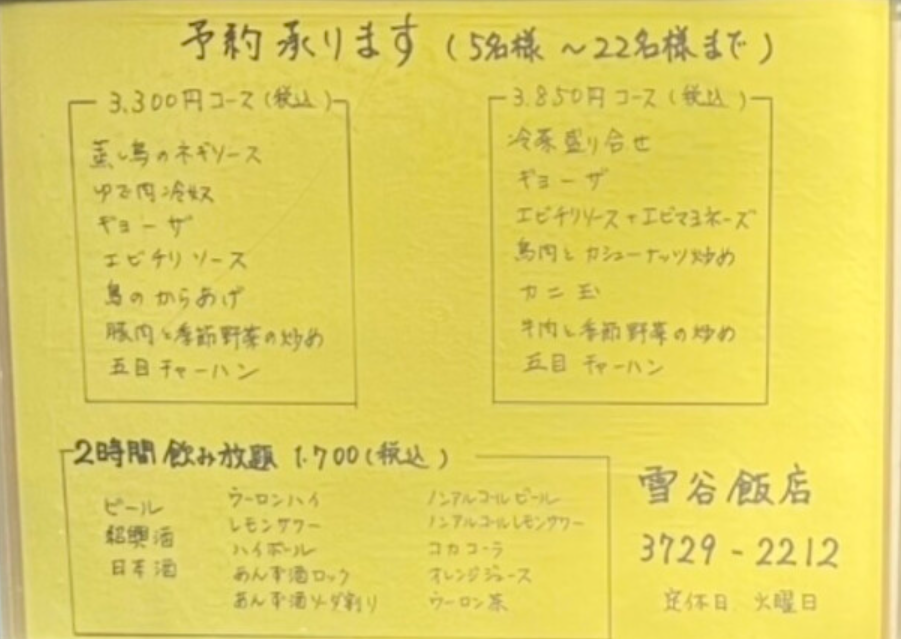 予約承ります（5名様 ～22名様まで）
3.300円コース（税込）
蒸し鳥のネギソース
ゆで肉冷奴
ギョーザ
エビチリソース
鳥のからあげ
豚肉と季節野菜の炒め
五目チャーハン
3.850円コース（税込）
冷菜盛り合せ
ギョーザ
エビチリソース+エビマヨネーズ
鳥肉とカシューナッツ炒め
カニ玉
牛肉と季節野菜の炒め
五目チャーハン
2時間飲み放題 1.700（税込）
ビール
紹興酒
日本酒
ウーロンハイ
レモンサワー
ハイボール
あんず酒ロック
あんず酒ソーダ割り
ノンアルコールビール
ノンアルコールレモンサワー
コカコーラ
オレンジジュース
ウーロン茶
雪谷飯店
3729-2212
定休日 火曜日